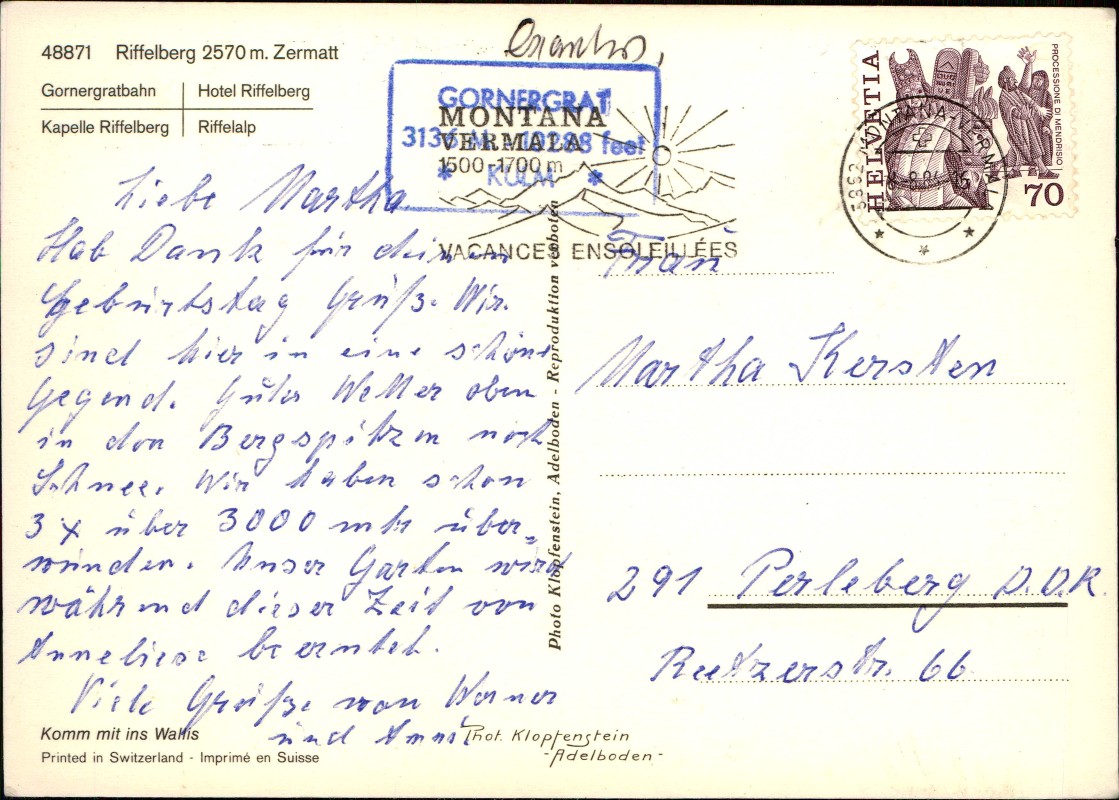 48871 Riffelberg 2570 m. Zermatt
Gornergratbahn Hotel Riffelberg
Kapelle Riffelberg Riffelalp
GORNERGRAT
3136 M. - 10288 feet
* KULM *
MONTANA
VERMALA
1500-1700 m
VACANCES ENSOLEILLÉES
HELVETIA
PROCESSIONE DI MENDRISIO
70
Liebe Martha
Hab Dank für deinen
Geburtstag Grüß. Wir
sind hier in eine schöne
Gegend. Gutes Wetter oben
in den Bergspitzen noch
Schnee. Wir haben schon
3 x über 3000 mtr über-
wunden. Unser Garten wird
während dieser Zeit von
Anneliese beerntet.
Viele Grüße von Werner
und Anni
Frau
Martha Kersten
291 Perleberg D.D.R.
Reetzerstr. 66
Photo Klopfenstein, Adelboden - Reproduktion verboten
Komm mit ins Wallis
Printed in Switzerland - Imprimé en Suisse
Phot. Klopfenstein
-Adelboden-